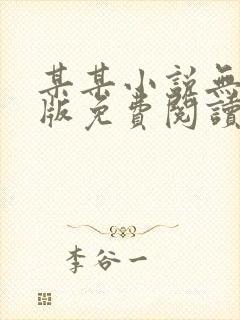 某某小說無
版免費閱讀
李谷一